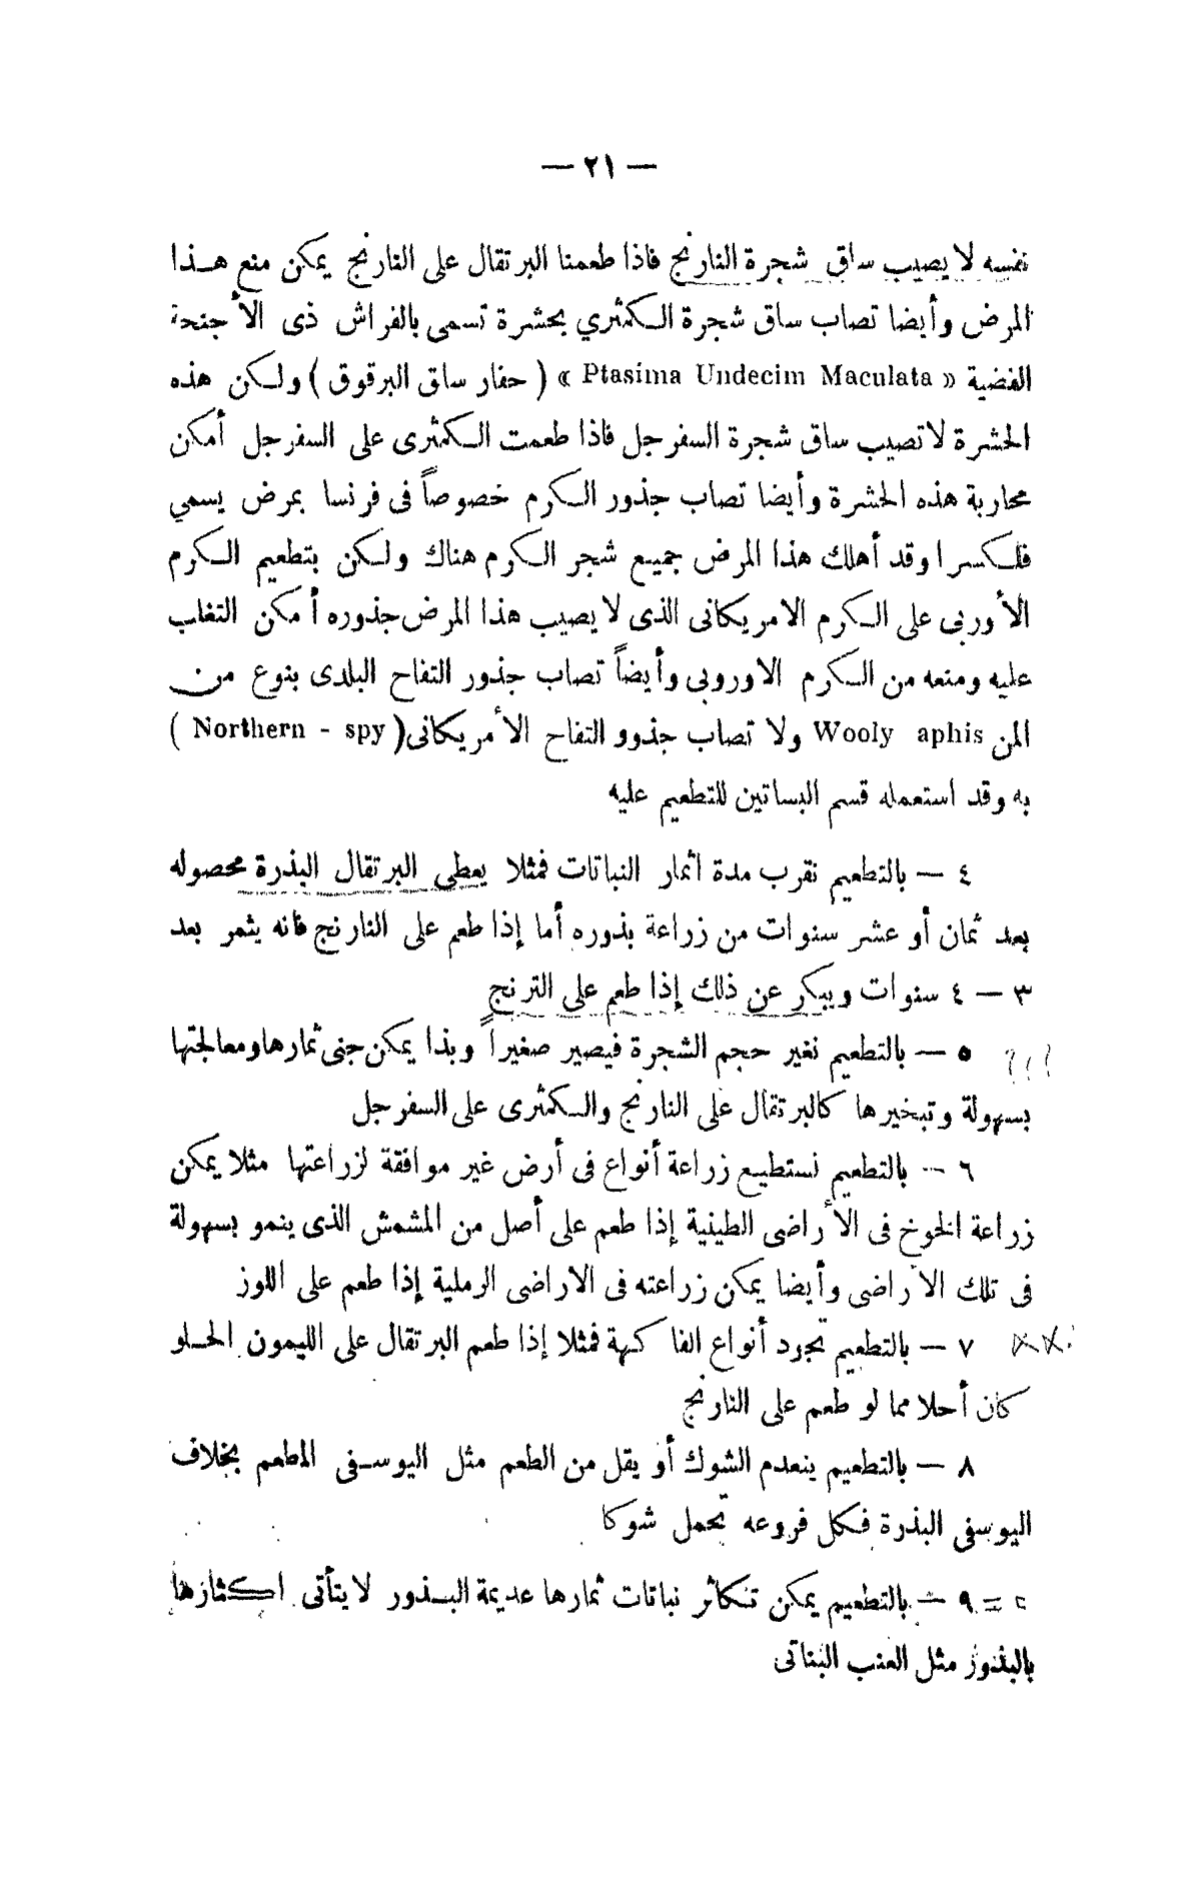 — ٢١ —
نفسه لا يصيب ساق شجرة النارنج فاذا طعمنا البرتقال على النارنج يمكن منع هذا
المرض وأيضا تصاب ساق شجرة الكمثري بحشرة تسمى بالفراش ذى الأجنحة
الفضية « Ptasima Undecim Maculata » ( حفار ساق البرقوق ) ولكن هذه
الحشرة لا تصيب ساق شجرة السفرجل فاذا طعمت الكمثرى على السفرجل أمكن
محاربة هذه الحشرة وأيضا تصاب جذور الكرم خصوصاً فى فرنسا بمرض يسمي
فلكسرا وقد أهلك هذا المرض جميع شجر الكرم هناك ولكن بتطعيم الكرم
الأوربى على الكرم الامريكانى الذى لا يصيب هذا المرض جذوره أمكن التغلب
عليه ومنعه من الكرم الاوروبى وأيضاً تصاب جذور التفاح البلدى بنوع من
المن Wooly aphis ولا تصاب جذوو التفاح الأمريكانى ( Northern - spy )
به وقد استعمله قسم البساتين للتطعيم عليه
٤ — بالتطعيم نقرب مدة اثمار النباتات فمثلا يعطى البرتقال البذرة محصوله
بعد ثمان أو عشر سنوات من زراعة بذوره أما إذا طعم على النارنج فانه يثمر بعد
٣ — ٤ سنوات ويبكر عن ذلك إذا طعم على الترنج
٥ — بالتطعيم نغير حجم الشجرة فيصير صغيراً وبذا يمكن جنى ثمارها ومعالجتها
بسهولة وتبخيرها كالبرتقال على النارنج والكمثرى على السفرجل
٦ — بالتطعيم نستطيع زراعة أنواع فى أرض غير موافقة لزراعتها مثلا يمكن
زراعة الخوخ فى الأراضى الطينية إذا طعم على أصل من المشمش الذى ينمو بسهولة
فى تلك الأراضى وأيضا يمكن زراعته فى الاراضى الرملية إذا طعم على اللوز
٧ — بالتطعيم تجود أنواع الفاكهة فمثلا إذا طعم البرتقال على الليمون الحلو
كان أحلا مما لو طعم على النارنج
٨ — بالتطعيم ينعدم الشوك أو يقل من الطعم مثل اليوسفى المطعم بخلاف
اليوسفى البذرة فكل فروعه تحمل شوكا
٩ — بالتطعيم يمكن تكاثر نباتات ثمارها عديمة البذور لا يتأتى اكثارها
بالبذور مثل العنب البناتى